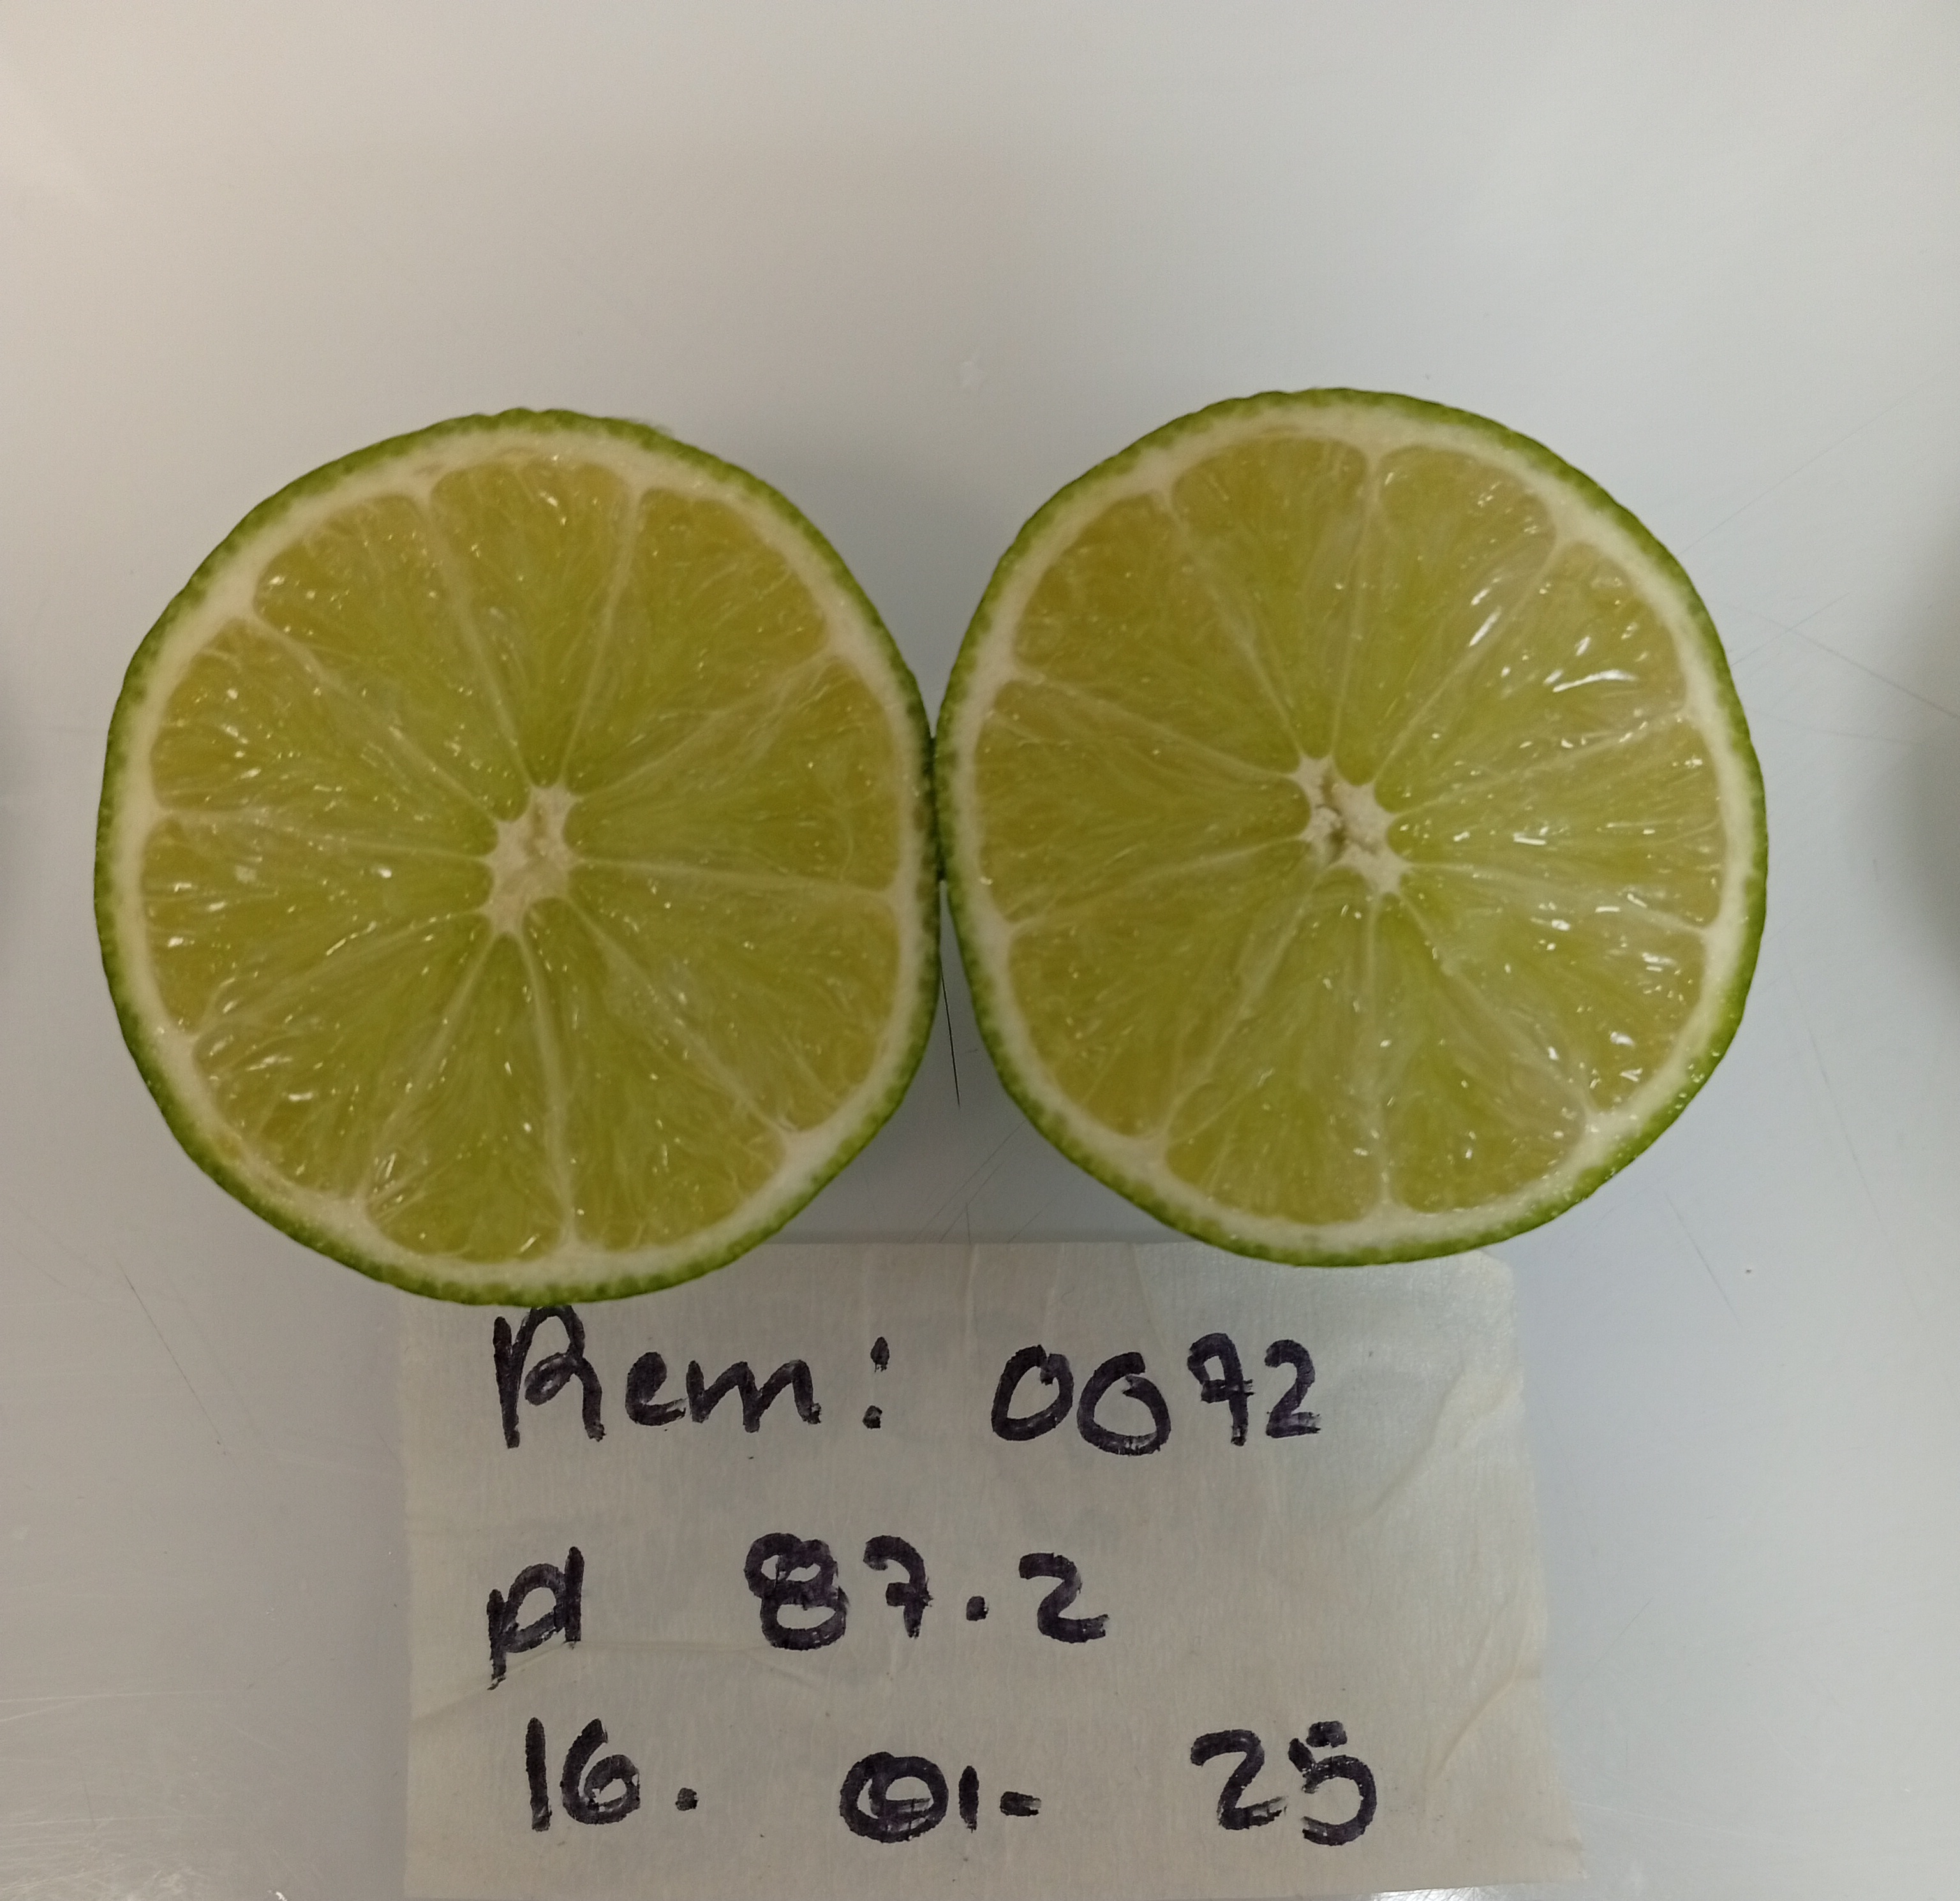 Rem: 0072
pl 87.2
16. 01. 25